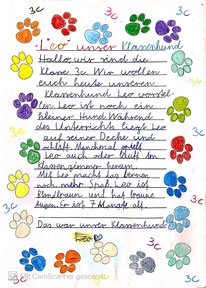 3c 3c
3c
Leo unser Klassenhund
Hallo, wir sind die
Klasse 3c. Wir wollen
euch heute unseren
Klassenhund Leo vorstel-
len. Leo ist noch ein
kleiner Hund. Während
des Unterrichts liegt Leo
auf seiner Decke und
schläft. Manchmal spielt
Leo auch oder läuft im
Klassenzimmer herum.
Mit Leo macht das lernen
noch mehr Spaß. Leo ist
blondbraun und hat braune
Augen. Er ist 7 Monate alt.
Das war unser Klassenhund
Leo
3c
3c
3c
3c
Mit CamScanner gescannt